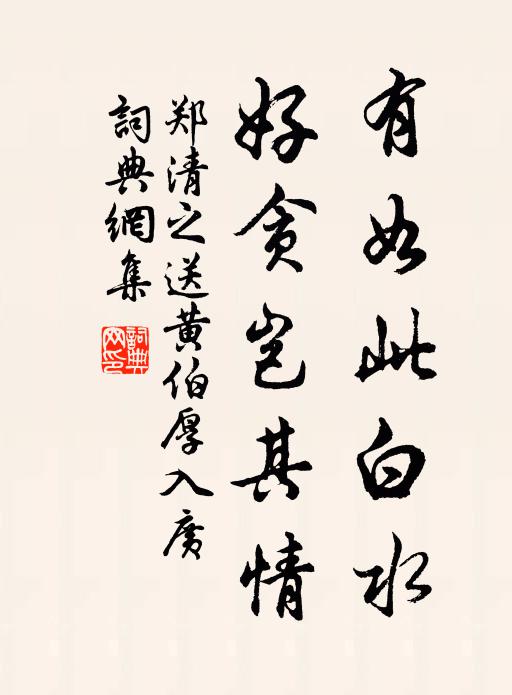 有如此白水
好贪岂其情
郑清之送黄伯厚入广
詞典網集
詞典网印